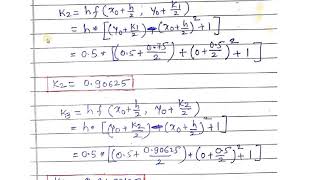 K₂ = hf(x₀+h/2, y₀+K₁/2)
= h*[(y₀+K₁/2)-(x₀+h/2)²+1]
= 0.5*[(0.5+0.75/2)+(0+0.5/2)²+1]
K₂ = 0.90625
K₃ = hf(x₀+h/2, y₀+K₂/2)
= h*[(y₀+K₂/2)-(x₀+h/2)²+1]
= 0.5*[(0.5+0.90625/2)+(0+0.5/2)²+1]